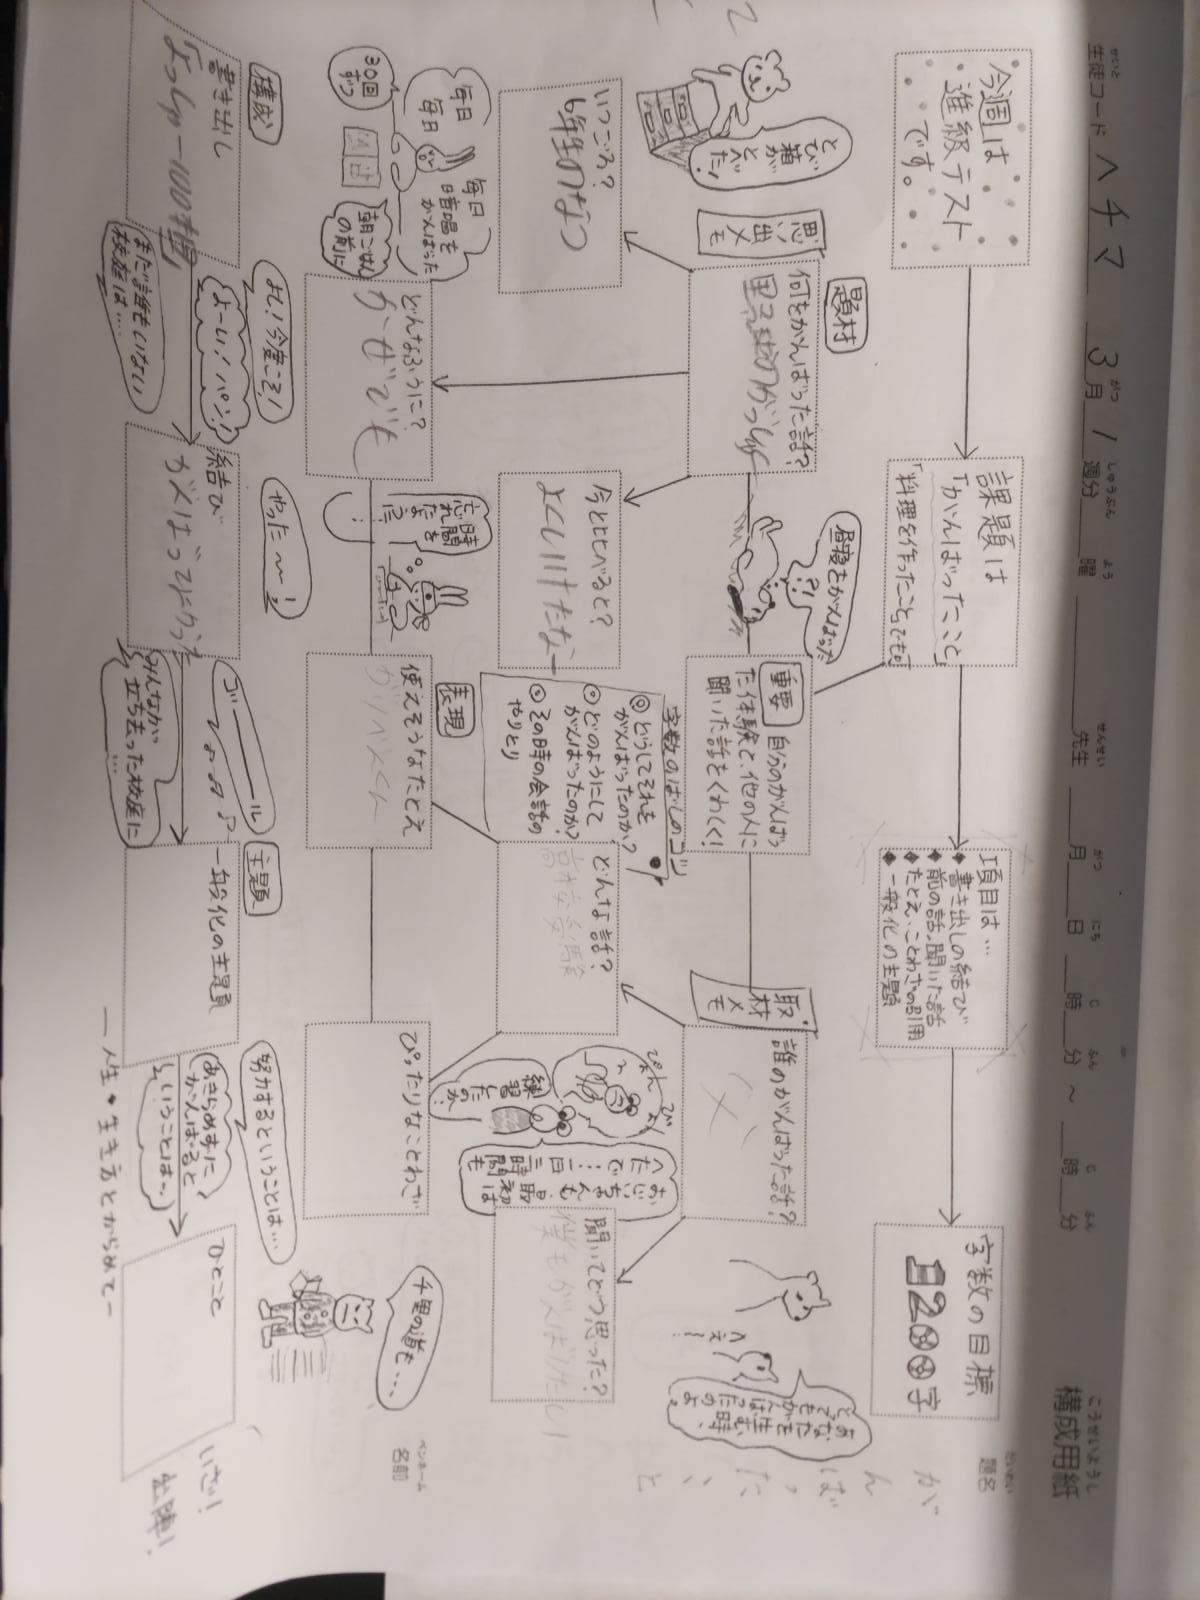 構成用紙
こうせいようし
生徒コード ヘチマ 3月1週分 曜 先生 月 日 時 分 ~ 時 分
題名
がんばったこと
名前
ペンネーム
今週は
進級テスト
です。
課題は
「がんばったこと」
「料理を作ったこと」でも可
項目は…
◆書き出しの結び
◆前の話、聞いた話
◆たとえ、ことわざの引用
◆一般化の主題
字数の目標
1200字
題材
何をがんばった話?
思い出メモ
とび箱が
とべた!
昼寝をがんばった
重要
自分のがんばっ
た体験と、他の人に
聞いた話をくわしく!
取材メモ
誰のがんばった話?
へえ!
あなたを
生む時、
いつごろ?
6年生のなつ
今とくらべると?
字数のばしのコツ
どうしてそれを
がんばったのか?
どのようにして
がんばったのか?
その時の会話の
やりとり
どんな話?
聞いてどう思った?
僕もがんばりたい
ぴょん
練習
したのか
おじいちゃんも
最初は
一日三時間も
毎日
毎日
30回
ずつ
毎日
暗唱を
がんばった
朝ごはん
の前に
どんなふうに?
時間を
忘れ
表現
使えそうなたとえ
ぴったりなことわざ
千里の道も…
構成
書き出し
よっしゃー100
よし!今度こそ!
よーい!パン!
まだ誰もいない
校庭は…
結び
やった〜!
ゴール
みんなが
立ち去った校庭に
…
主題
一般化の主題
努力するということは…
あきらめずに
がんばると
いうことは〜
ー人生・生き方とからめてー
ひとこと
いざ!
出陣!